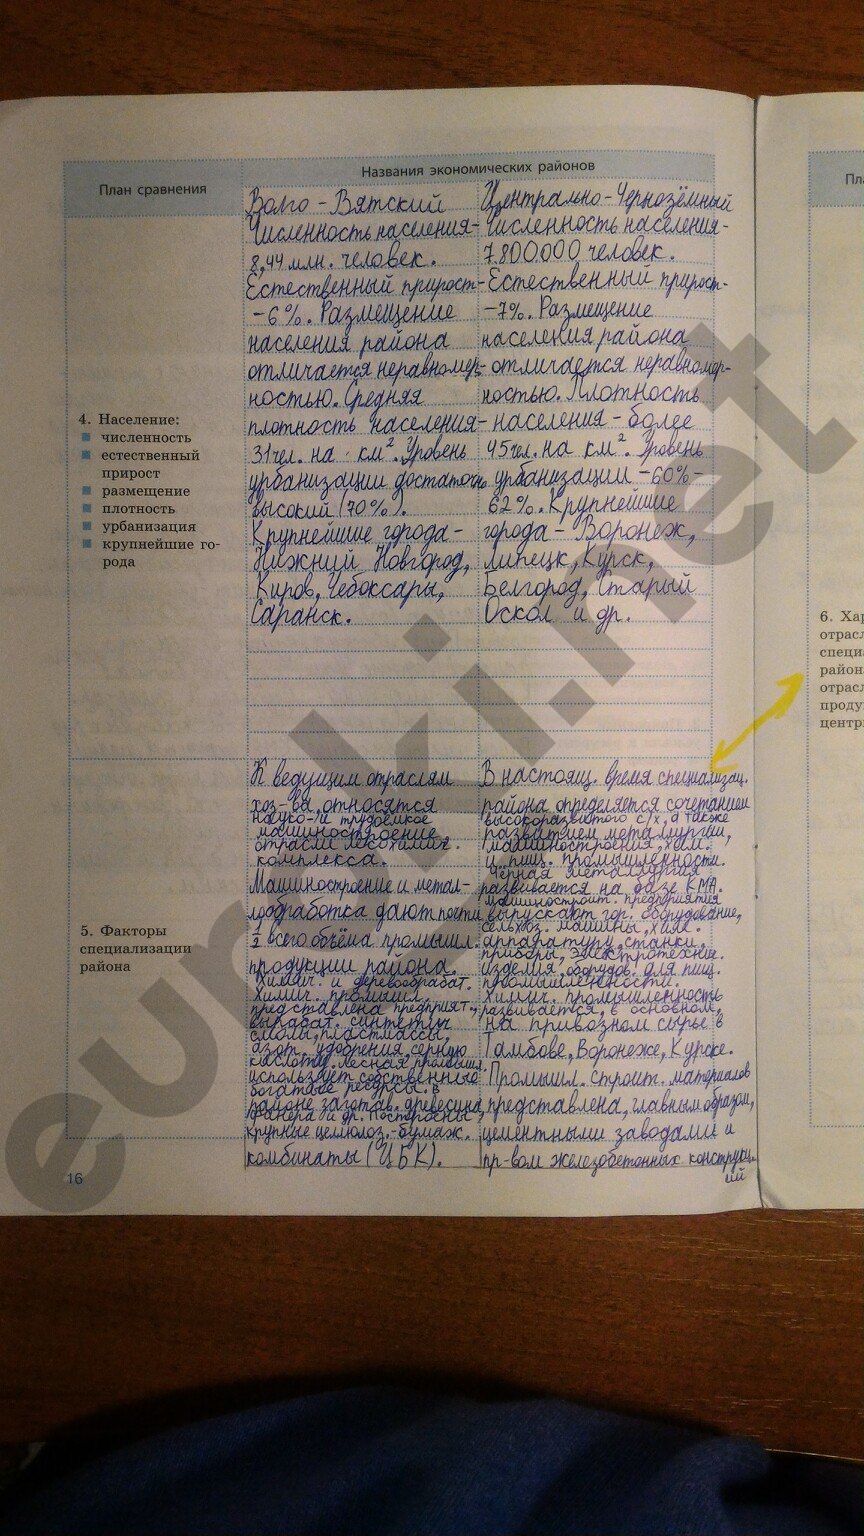 Названия экономических районов
План сравнения
Волго-Вятский
Численность населения-
8,44 млн. человек.
Естественный прирост-
-6%. Размещение
населения района
отличается неравномер-
ностью. Средняя
плотность населения-
31 чел. на км². Уровень
урбанизации достаточно
высокий (70%).
Крупнейшие города-
Нижний Новгород,
Киров, Чебоксары,
Саранск.
Центрально-Чернозёмный
Численность населения-
7.800.000 человек.
Естественный прирост-
-7%. Размещение
населения района
отличается неравномер-
ностью. Плотность
населения-более
45 чел. на км². Уровень
урбанизации -60%-
62%. Крупнейшие
города-Воронеж,
Липецк, Курск,
Белгород, Старый
Оскол и др.
4. Население:
численность
естественный
прирост
размещение
плотность
урбанизация
крупнейшие го-
рода
5. Факторы
специализации
района
К ведущим отраслям
хоз-ва относятся
науко- и трудоёмкое
машиностроение
отрасли лесохимич.
комплекса.
Машиностроение и метал-
лообработка дают почти
1/2 всего объёма промышл.
продукции района.
Химич. и деревообрабат.
Химич. промышл.
представлена предприят.,
вырабат. синтетич
смолы, пластмассы,
азот. удобрения, серную
кислоту. Лесная промышл.
использует собственные
богатые ресурсы. В
районе заготав. древесина,
фанера и др. Построены
крупные целлюлоз.-бумаж.
комбинаты (ЦБК).
В настоящ. время специализац.
района определяется сочетанием
высокоразвитого с/х, а также
развитием металлургии,
машиностроения, хим.
и пищ. промышленности.
Чёрная металлургия
развивается на базе КМА.
Машиностроит. предприятия
выпускают гор. оборудование,
сельхоз. машины, хим.
аппаратуру, станки,
приборы, электротехнич.
изделия, оборудов. для пищ.
промышленности.
Химич. промышленность
развивается, в основном,
на привозном сырье в
Тамбове, Воронеже, Курске.
Промышл. строит. материалов
представлена, главным образом,
цементными заводами и
пр-вом железобетонных конструкц-
ий
16
Пла
6. Хар
отрасл
специа
район
отрасл
проду
центр
euroki.net